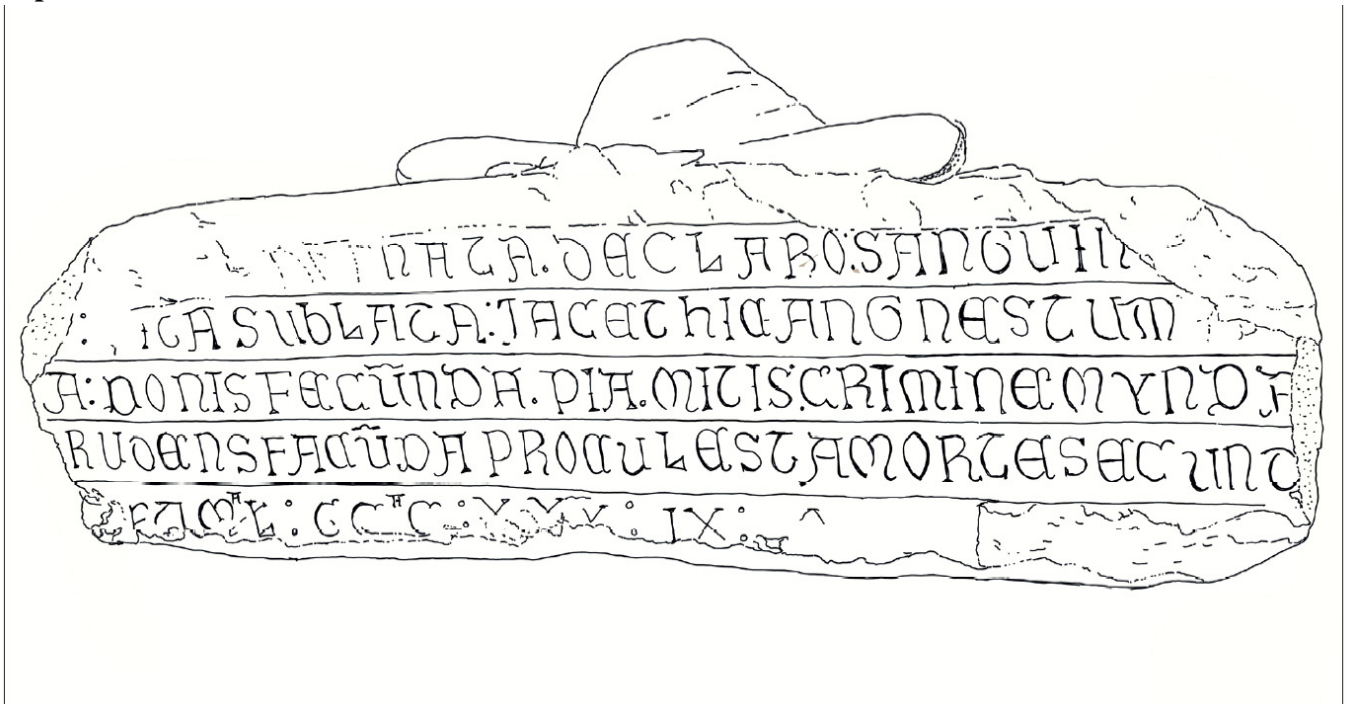 NATA. DE CLARO: SANGUIN
ITA SUBLATA: JACET HIC ANGNES TUM
A: DONIS FECŪNDA. PIA. MITIS: CRIMINE MYNDA
RUDENS FACŪDA PROCUL EST A MORTE SECUND
: CCC : XXX : IX :